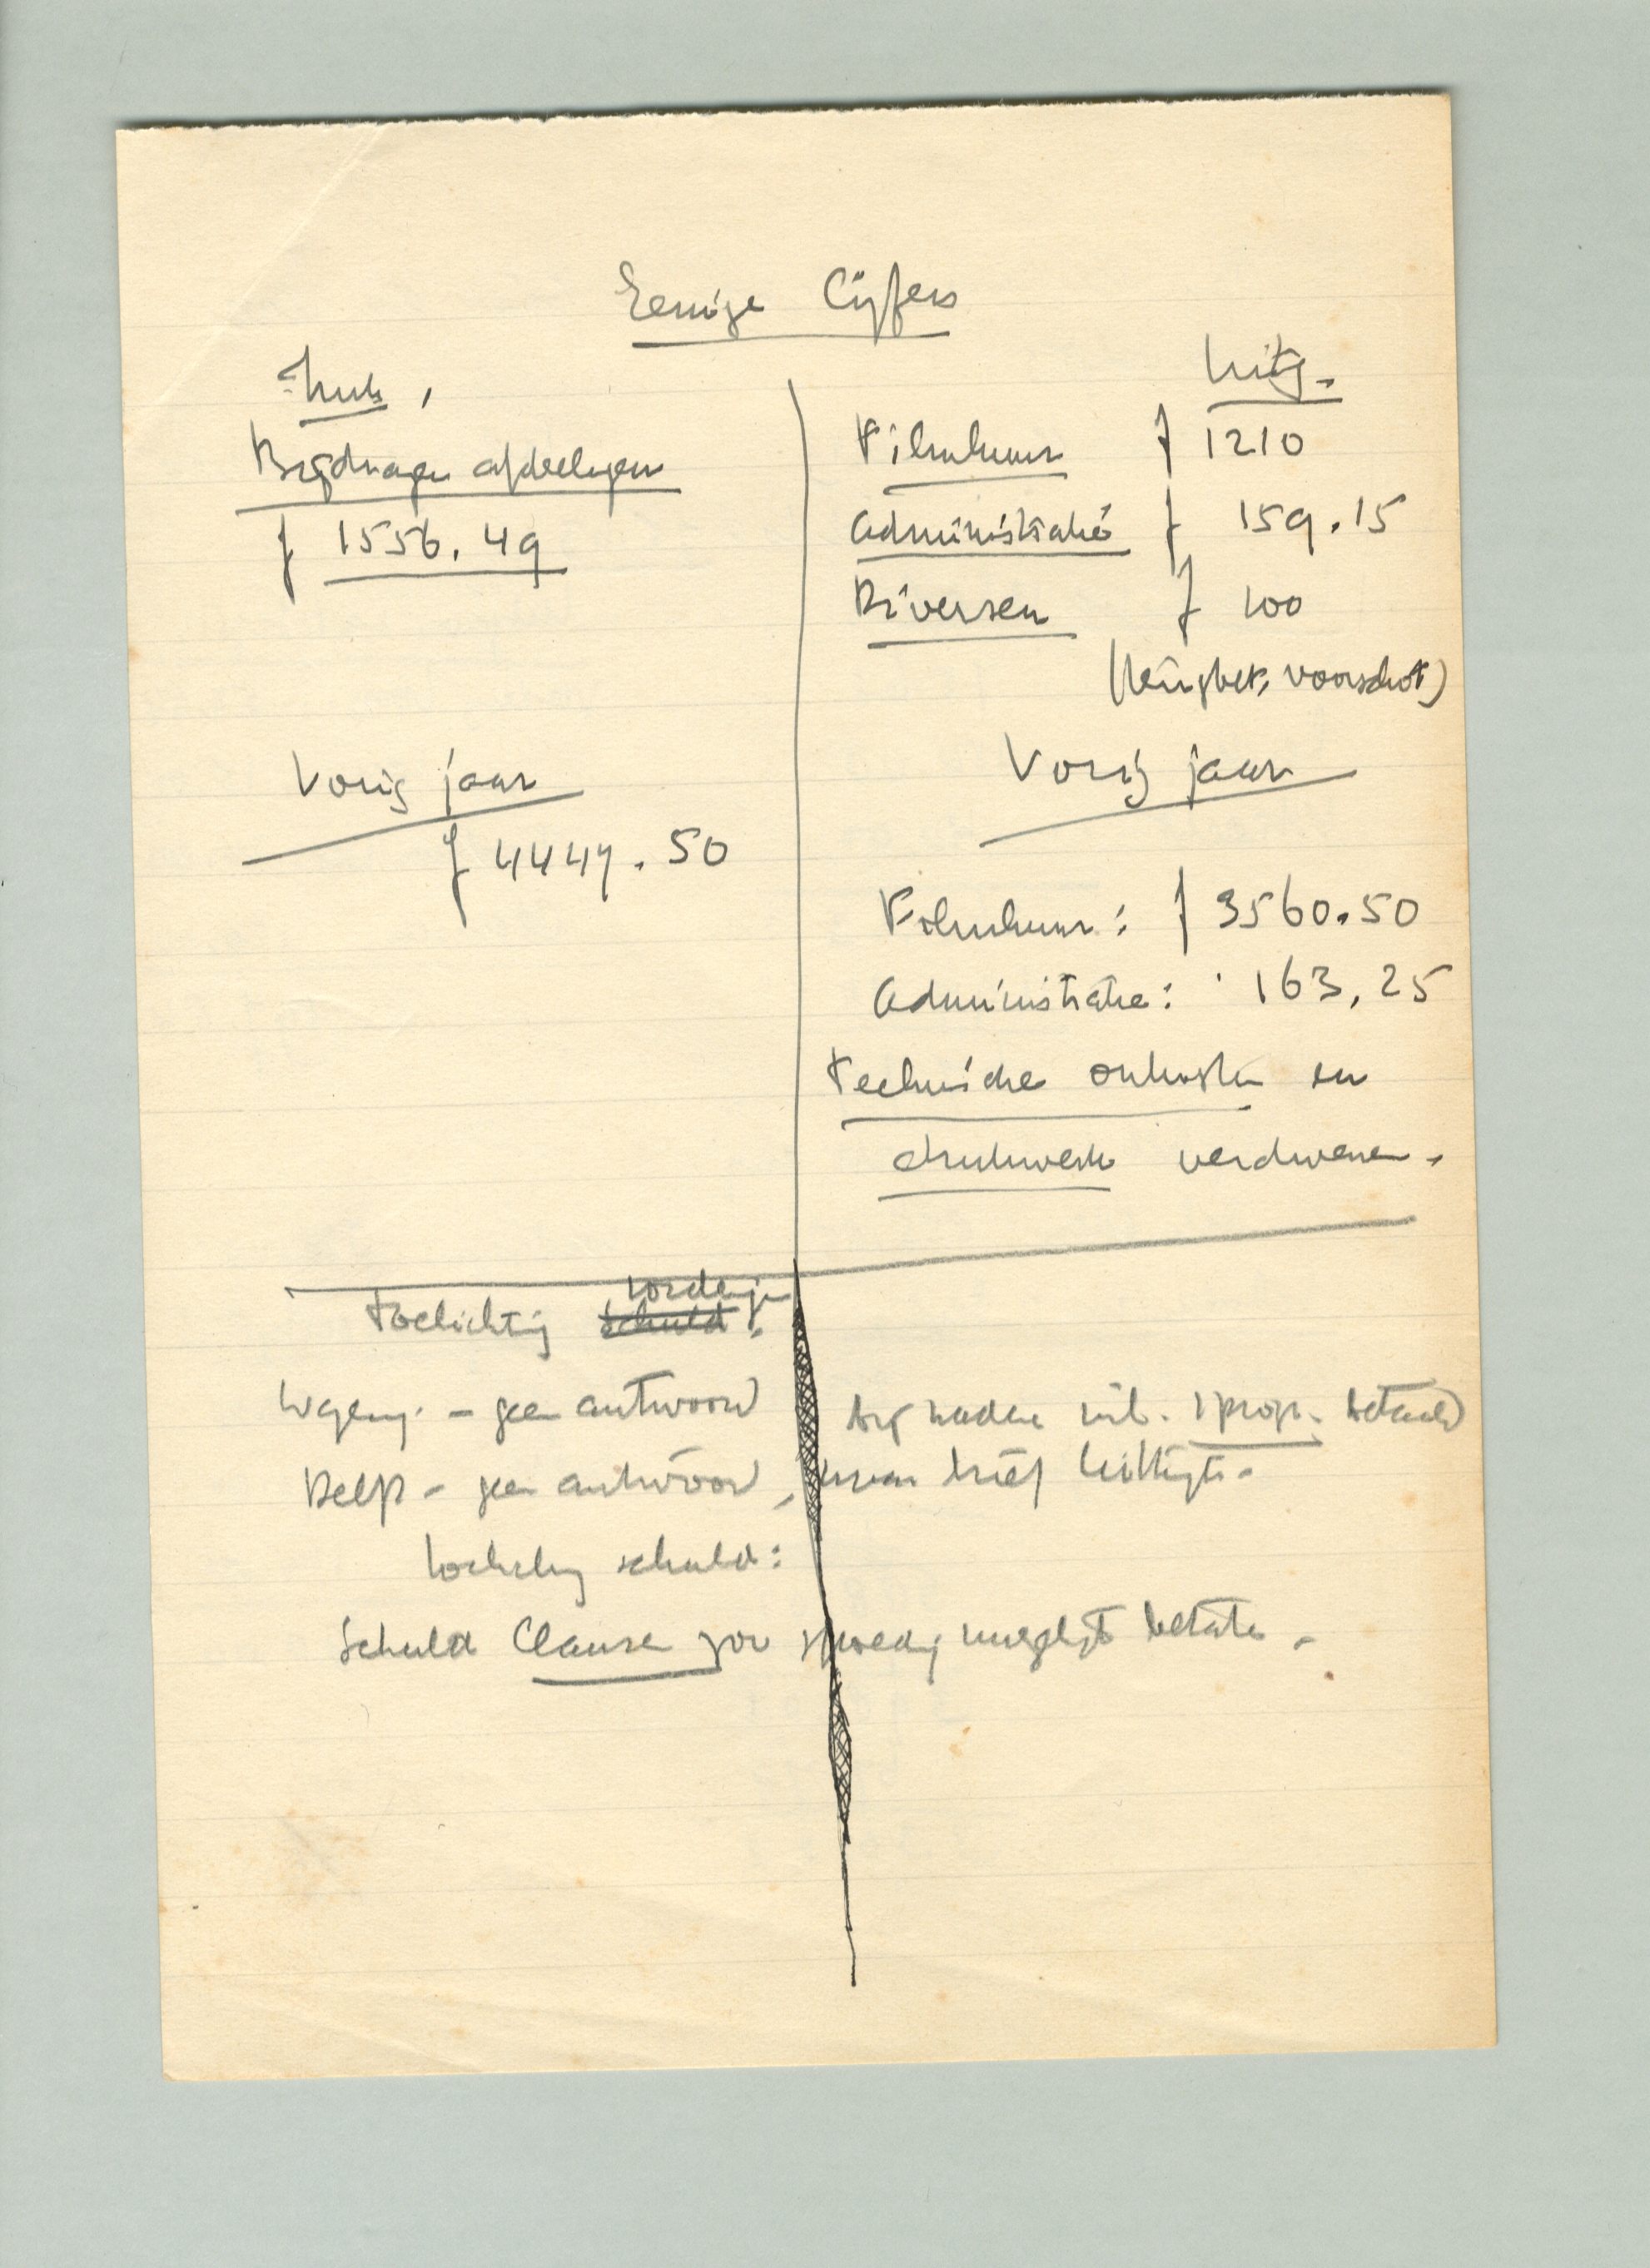 Eenige Cijfers
Ink.
Bijdragen afdeelingen
f 1556.49
Vorig jaar
f 4447.50
Uitg.
Filmhuur f 1210
Administratie f 159.15
Diversen f 100
(terugbet. voorschot)
Vorig jaar
Filmhuur: f 3560.50
Administratie: 163,25
Technische onkosten en
drukwerk verdwenen.
Toelichting schuld vorderingen.
Wagening. - geen antwoord
hadden betaald
Delft - geen antwoord, brief
schuld:
Schuld Clause zoo spoedig mogelijk betalen.